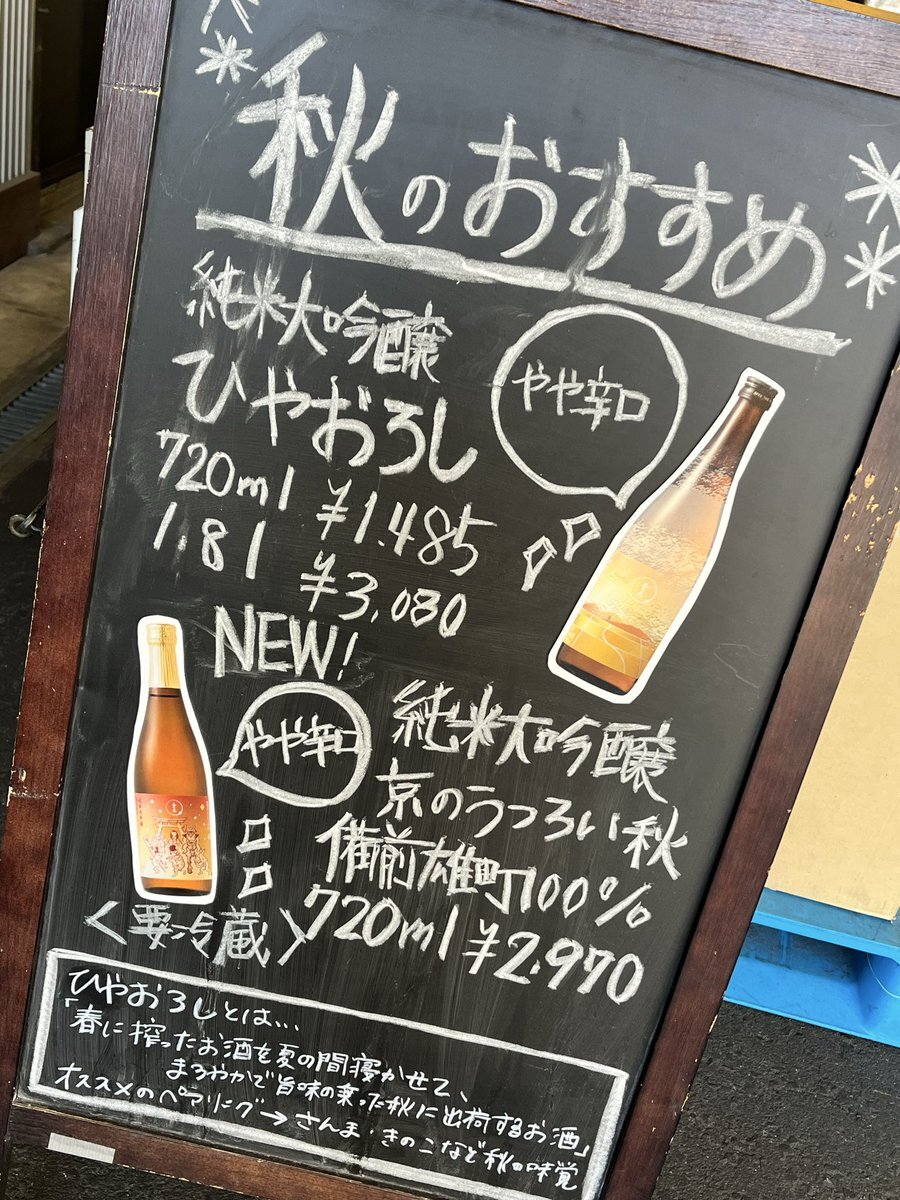 秋のおすすめ
純米大吟醸
ひやおろし
やや辛口
720ml ¥1.485
1.8l ¥3,080
NEW!
やや辛口
純米大吟醸
京のうつろい秋
備前雄町100%
720ml ¥2.970
〈要冷蔵〉
ひやおろしとは...
「春に搾ったお酒を夏の間寝かせて、
まろやかで旨味の乗った秋に出荷するお酒」
オススメのペアリング→さんま・きのこなど秋の味覚